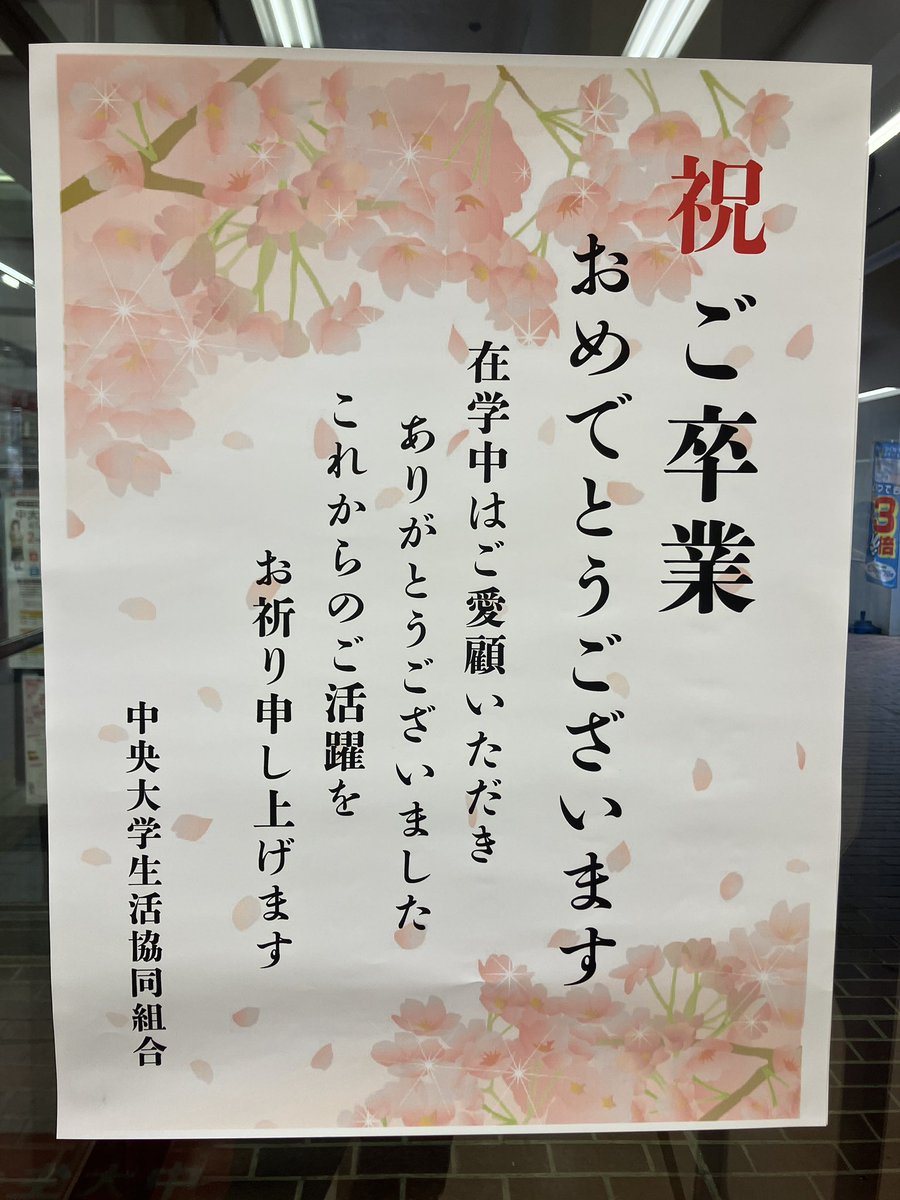 祝ご卒業
おめでとうございます
在学中はご愛顧いただき
ありがとうございました
これからのご活躍を
お祈り申し上げます
中央大学生活協同組合
3
倍